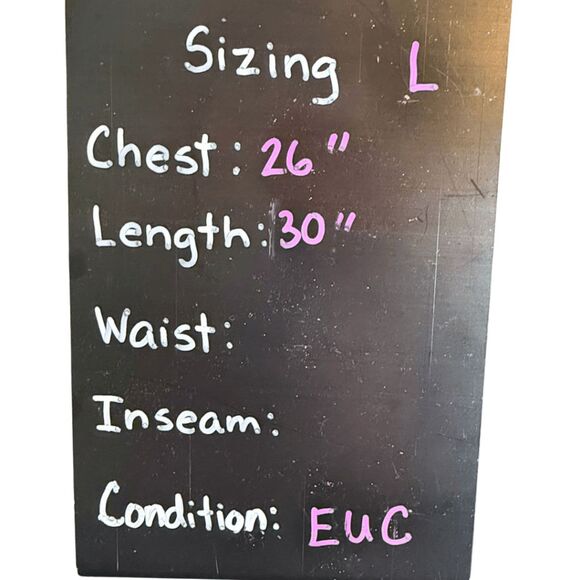 Sizing L
Chest: 26"
Length: 30"
Waist:
Inseam:
Condition: EUC